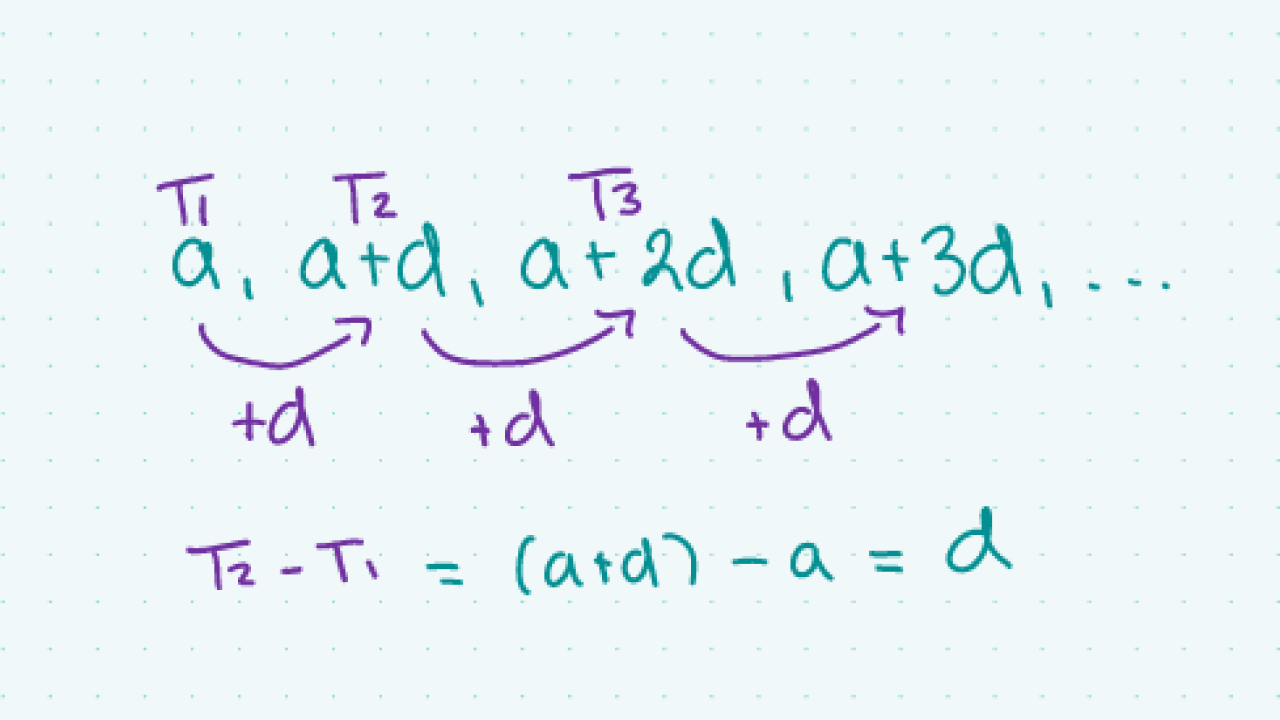 T1 T2 T3
a, a+d, a+2d, a+3d, ...
+d +d +d
T2 - T1 = (a+d) - a = d